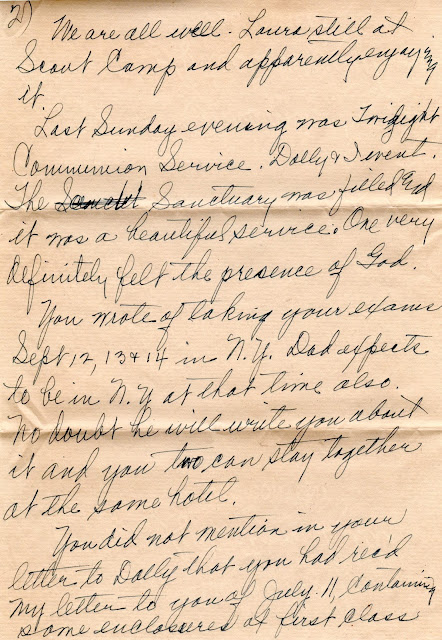 2)
We are all well. Laura still at
Scout Camp and apparently enjoying
it
Last Sunday evening was Twilight
Communion Service. Dolly & I went.
The Sanctuary was filled and
it was a beautiful service. One very
definitely felt the presence of God.
You wrote of taking your exams
Sept 12, 13 & 14 in N.Y. Dad expects
to be in N.Y at that time also.
No doubt he will write you about
it and you two can stay together
at the same hotel.
You did not mention in your
letter to Dolly that you had rec'd
my letter to you of July 11, containing
some enclosures at first class